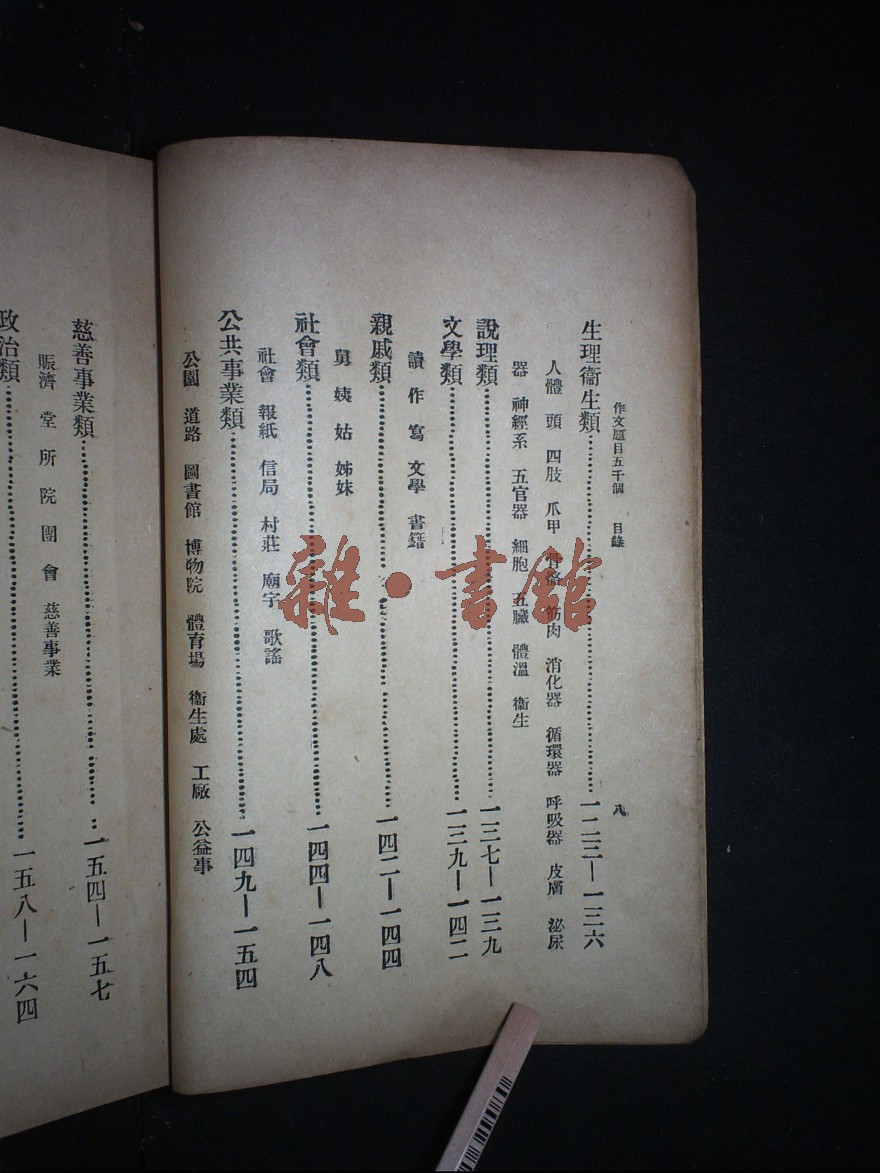 作文題目五千個 目錄 八
生理衞生類……一二三—一三六
人體 頭 四肢 爪甲 骨骼 筋肉 消化器 循環器 呼吸器 皮膚 泌尿
器 神經系 五官器 細胞 五臟 體溫 衞生
說理類……一三七—一三九
文學類……一三九—一四二
讀 作 寫 文學 書籍
親戚類……一四二—一四四
舅 姨 姑 姊妹
社會類……一四四—一四八
社會 報紙 信局 村莊 廟宇 歌謠
公共事業類……一四九—一五四
公園 道路 圖書館 博物院 體育場 衞生處 工廠 公益事
慈善事業類……一五四—一五七
賑濟 堂 所 院 團 會 慈善事業
政治類……一五八—一六四
雜·書館